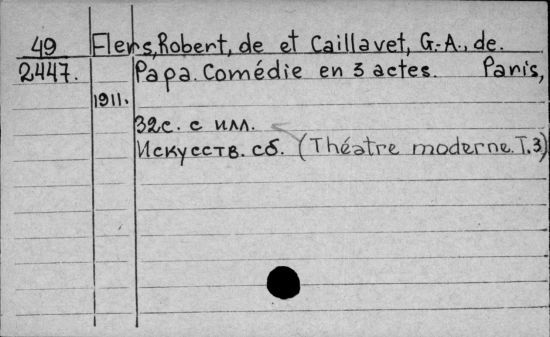 49 Flers, Robert, de et Caillavet, G.-A., de.
2447. Papa. Comédie en 3 actes. Paris,
1911.
32с. с илл.
Искусств. сб. (Théatre moderne. T.3)